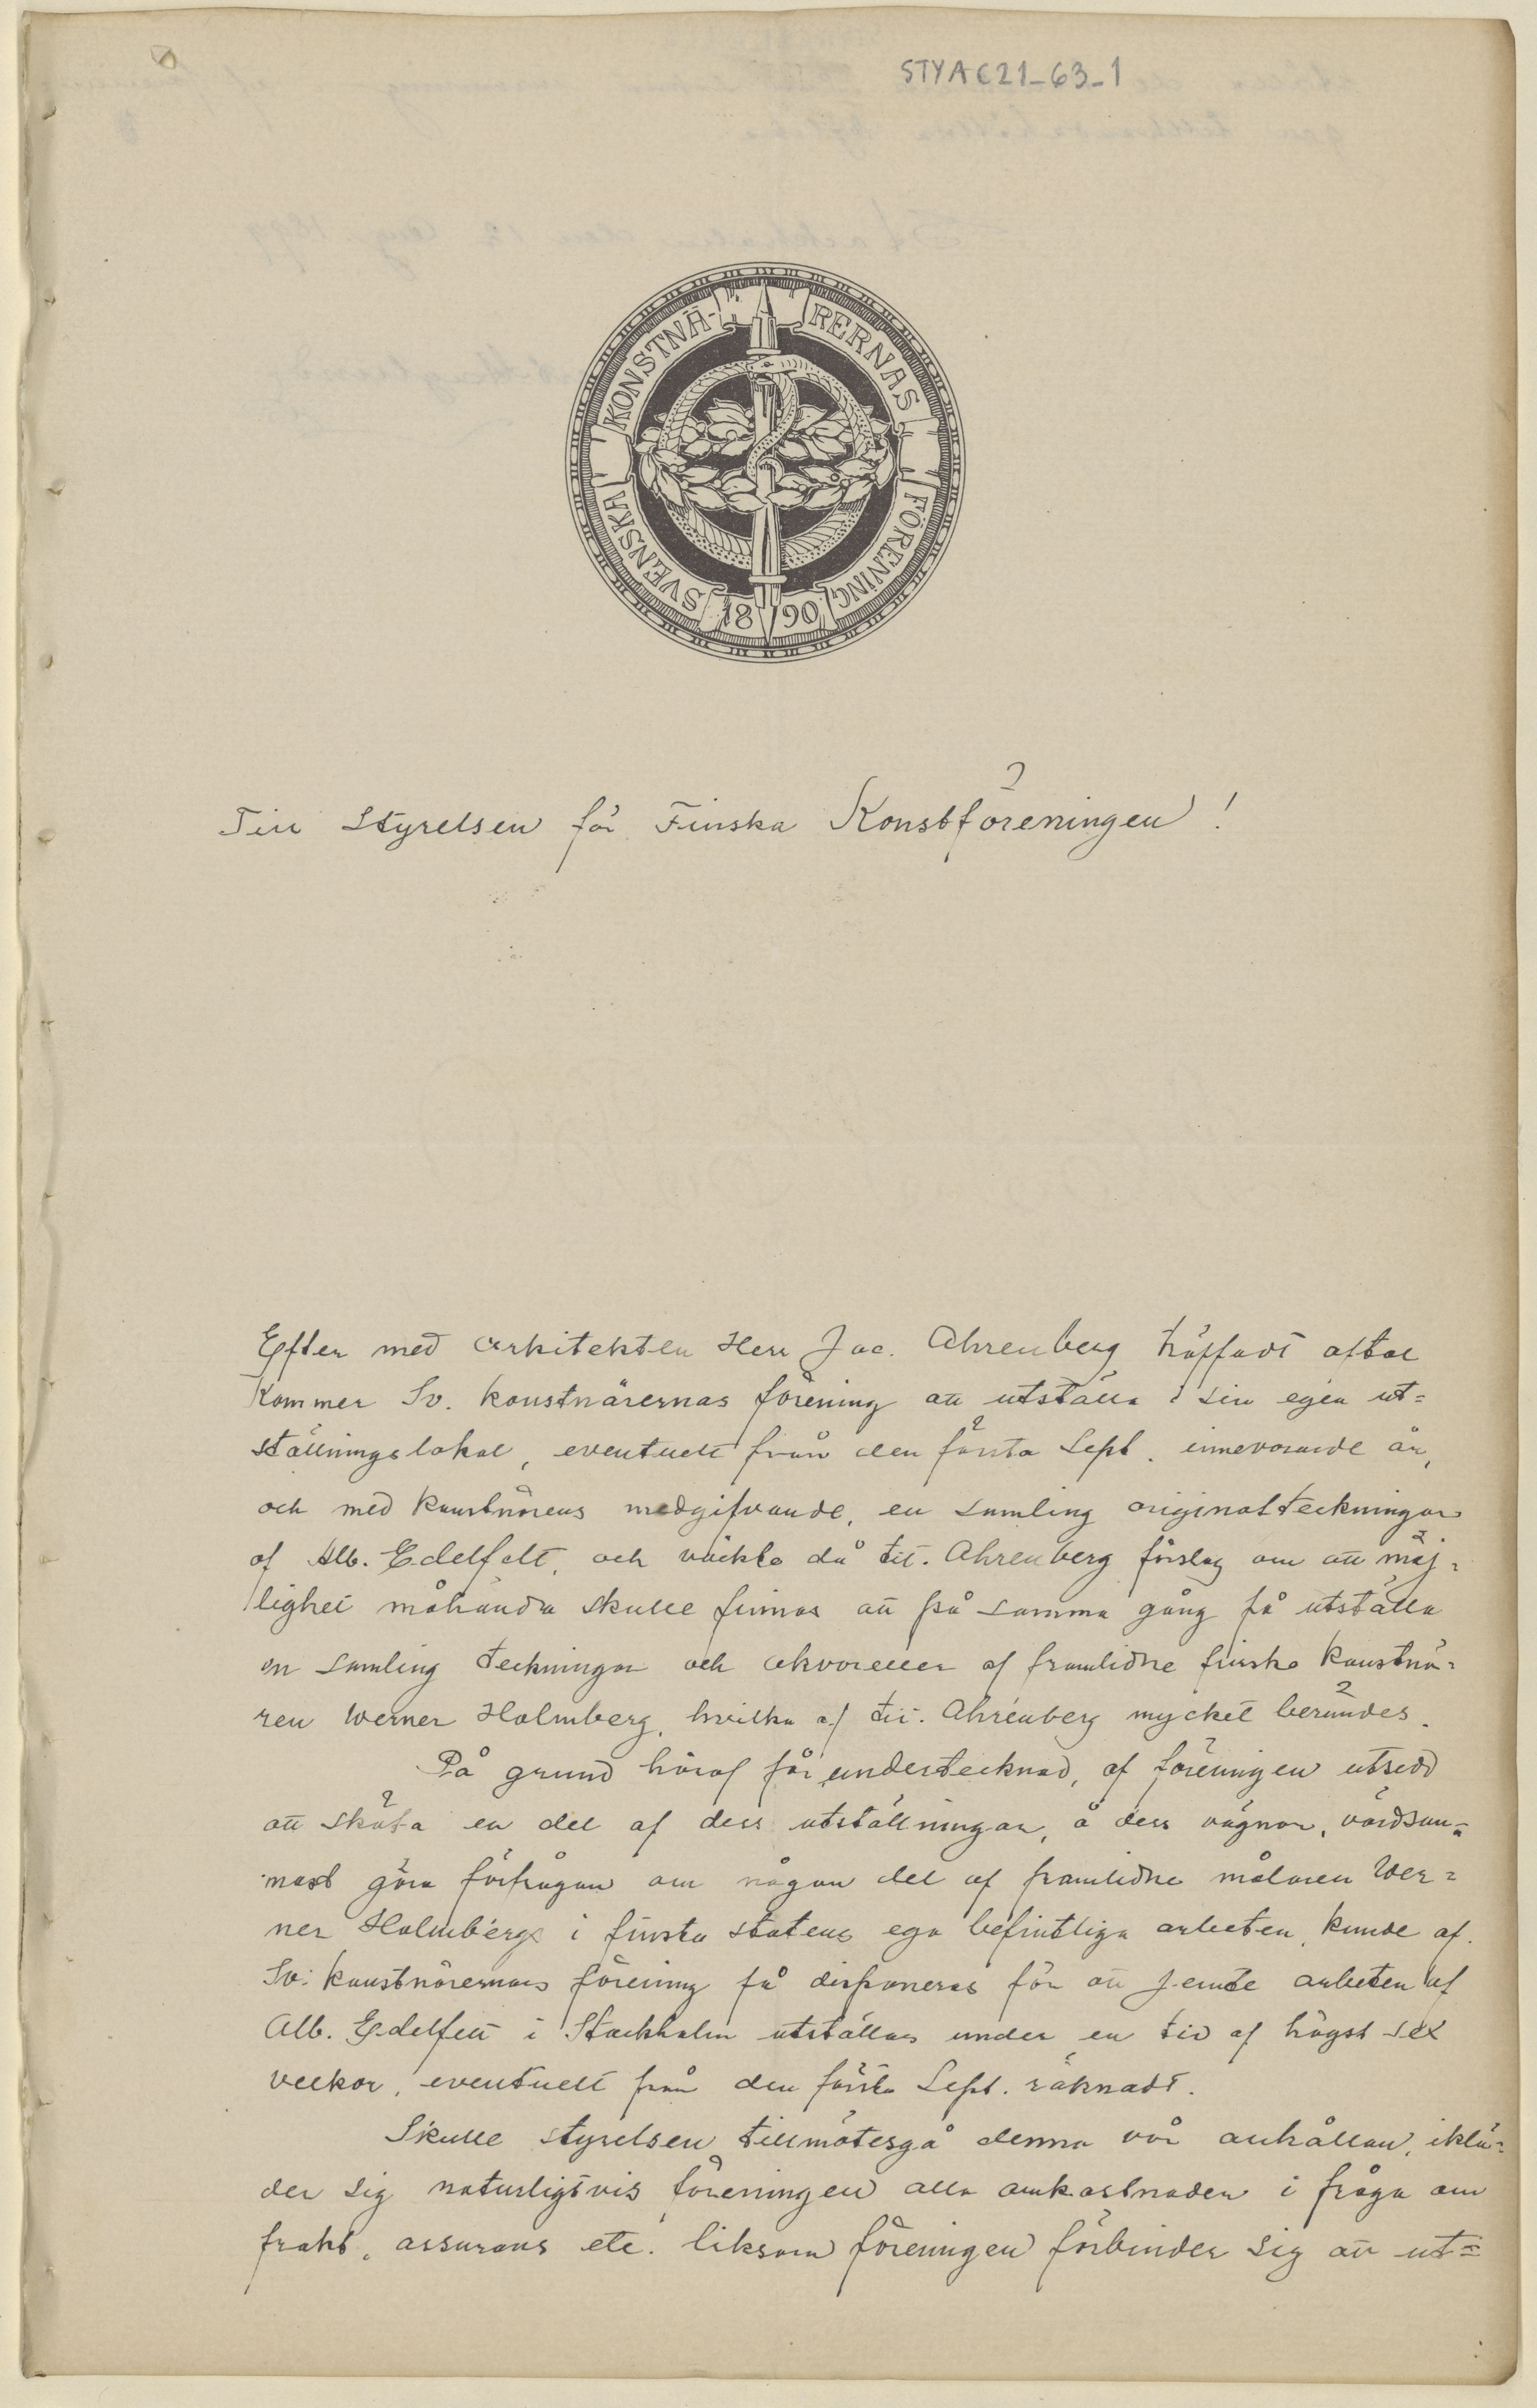 STYAC21_63_1
SVENSKA KONSTNÄ-RERNAS FÖRENING
1890
Till Styrelsen för Finska Konstföreningen!
Efter med arkitekten Herr Jac. Ahrenberg träffadt aftal
kommer Sv. konstnärernas förening att utställa i sin egen ut=
ställningslokal, eventuelt från den första Sept. innevarande år,
och med konstnärens medgifvande, en samling originalteckningar
af Alb. Edelfelt, och väckte då tit. Ahrenberg förslag om att möj=
lighet måhända skulle finnas att på samma gång få utställa
en samling teckningar och akvareller af framlidne finske konstnä=
ren Werner Holmberg, hvilka af tit. Ahrenberg mycket berömdes.
På grund häraf får undertecknad, af föreningen utsedd
att sköta en del af dess utställningar, å dess vägnar, vördsam=
mast göra förfrågan om någon del af framlidne målaren Wer=
ner Holmbergs i finska statens ego befintliga arbeten, kunde af
Sv. konstnärernas förening få disponeras för att jemte arbeten af
Alb. Edelfelt i Stockholm utställas under en tid af högst sex
veckor, eventuelt från den första Sept. räknadt.
Skulle styrelsen tillmötesgå denna vår anhållan, iklä=
der sig naturligtvis föreningen alla omkostnader i fråga om
frakt, assurans etc. liksom föreningen förbinder sig att ut=